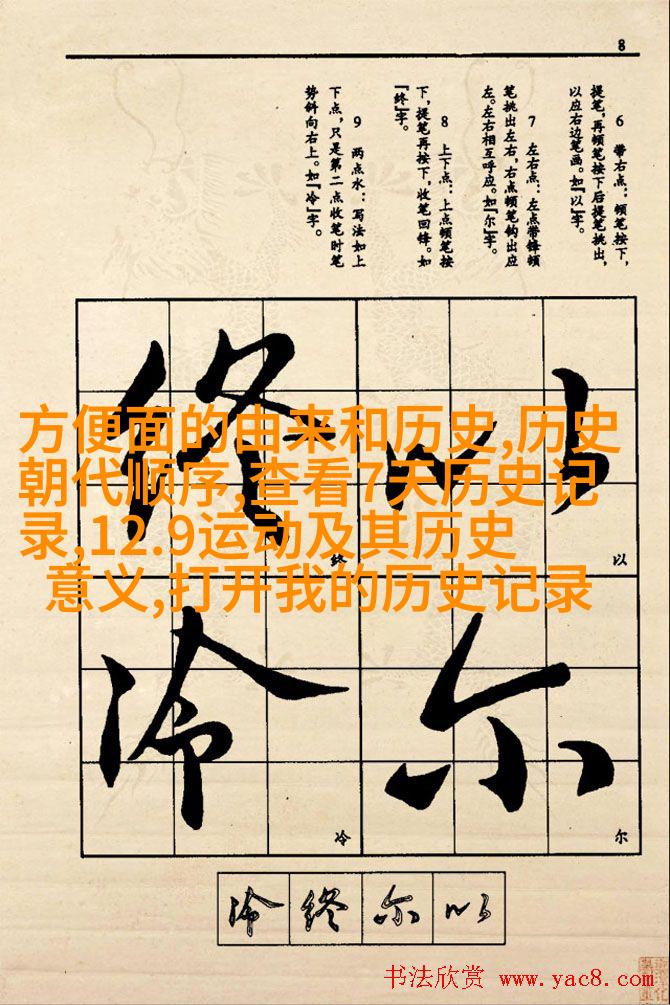 8
6 带右点:顿笔按下,
提笔,再顿笔按下后提笔挑出,
以应右边笔画。如『以』字。
7 左右点:左点带锋顿
笔挑出左右,右点顿笔钩出应
左。左右相互呼应。如『尔』字。
8 上下点:上点顿笔按
下,提笔再按下,收笔回锋。如
『终』字。
9 两点水:写法如上
下点,只是第二点收笔时笔
势斜向右上。如『冷』字。
方便面的由来和历史,历史
朝代顺序,查看7天历史记
录,12.9运动及其历史
意义,打开我的历史记录
以
终
尔
冷
以
终
尔
冷
冷 终 尔 以
书法欣赏 www.yac8.com